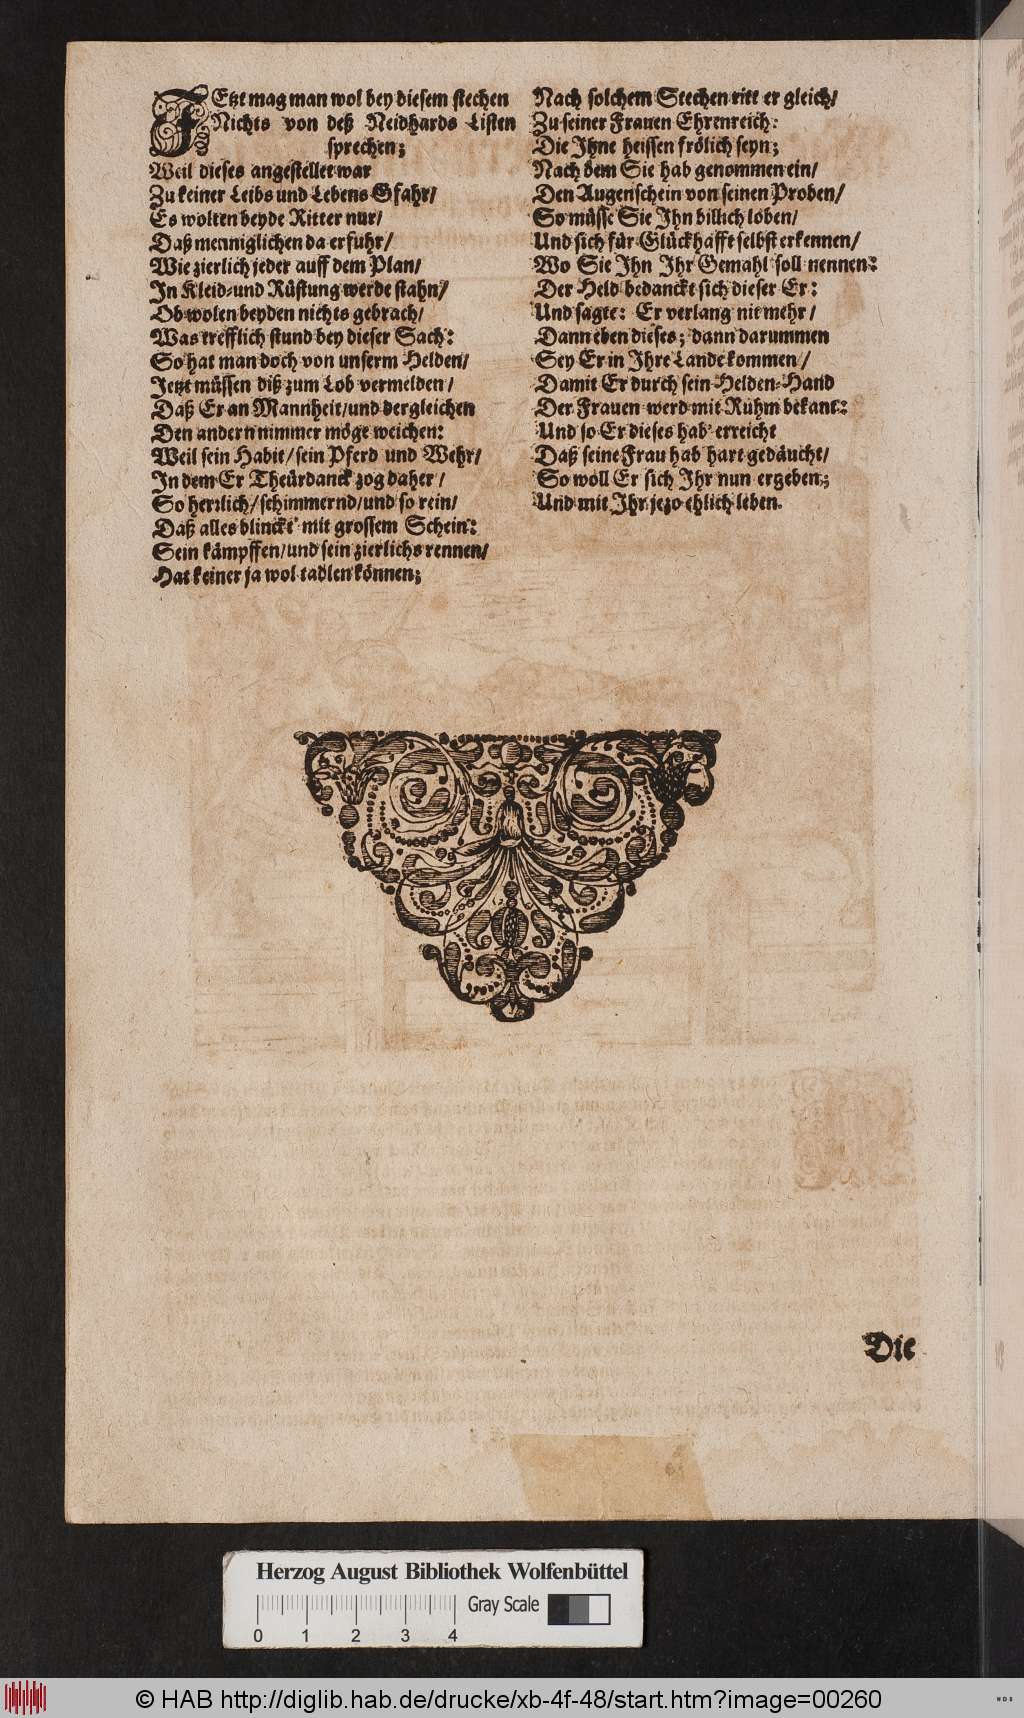 JEtzt mag man wol bey diesem stechen
Nichts von deß Neidhards Listen
sprechen;
Weil dieses angestellet war
Zu keiner Leibs und Lebens Gfahr/
Es wolten beyde Ritter nur/
Daß menniglichen da erfuhr/
Wie zierlich jeder auff dem Plan/
In Kleid-und Rüstung werde stahn/
Ob wolen beyden nichts gebrach/
Was trefflich stund bey dieser Sach:
So hat man doch von unserm Helden/
Jetzt müssen diß zum Lob vermelden/
Daß Er an Mannheit/und dergleichen
Den andern nimmer möge weichen:
Weil sein Habit/sein Pferd und Wehr/
In dem Er Theürdanck zog daher/
So herrlich/schimmernd/und so rein/
Daß alles blinckt' mit grossem Schein:
Sein kämpffen/und sein zierlichs rennen/
Hat keiner ja wol tadlen können;
Nach solchem Stechen ritt er gleich/
Zu seiner Frauen Ehrenreich:
Die Ihne heissen frölich seyn;
Nach dem Sie hab genommen ein/
Den Augenschein von seinen Proben/
So müsse Sie Ihn billich loben/
Und sich für Glückhafft selbst erkennen/
Wo Sie Ihn Ihr Gemahl soll nennen:
Der Held bedanckt sich dieser Er:
Und sagte: Er verlang nit mehr/
Dann eben dieses; dann darummen
Sey Er in Ihre Lande kommen/
Damit Er durch sein Helden-Hand
Der Frauen werd mit Rühm bekant:
Und so Er dieses hab' erreicht
Daß seine Frau hab hart gedäucht/
So woll Er sich Ihr nun ergeben;
Und mit Ihr jezo ehlich leben.
Die
Herzog August Bibliothek Wolfenbüttel
Gray Scale
0 1 2 3 4
© HAB http://diglib.hab.de/drucke/xb-4f-48/start.htm?image=00260